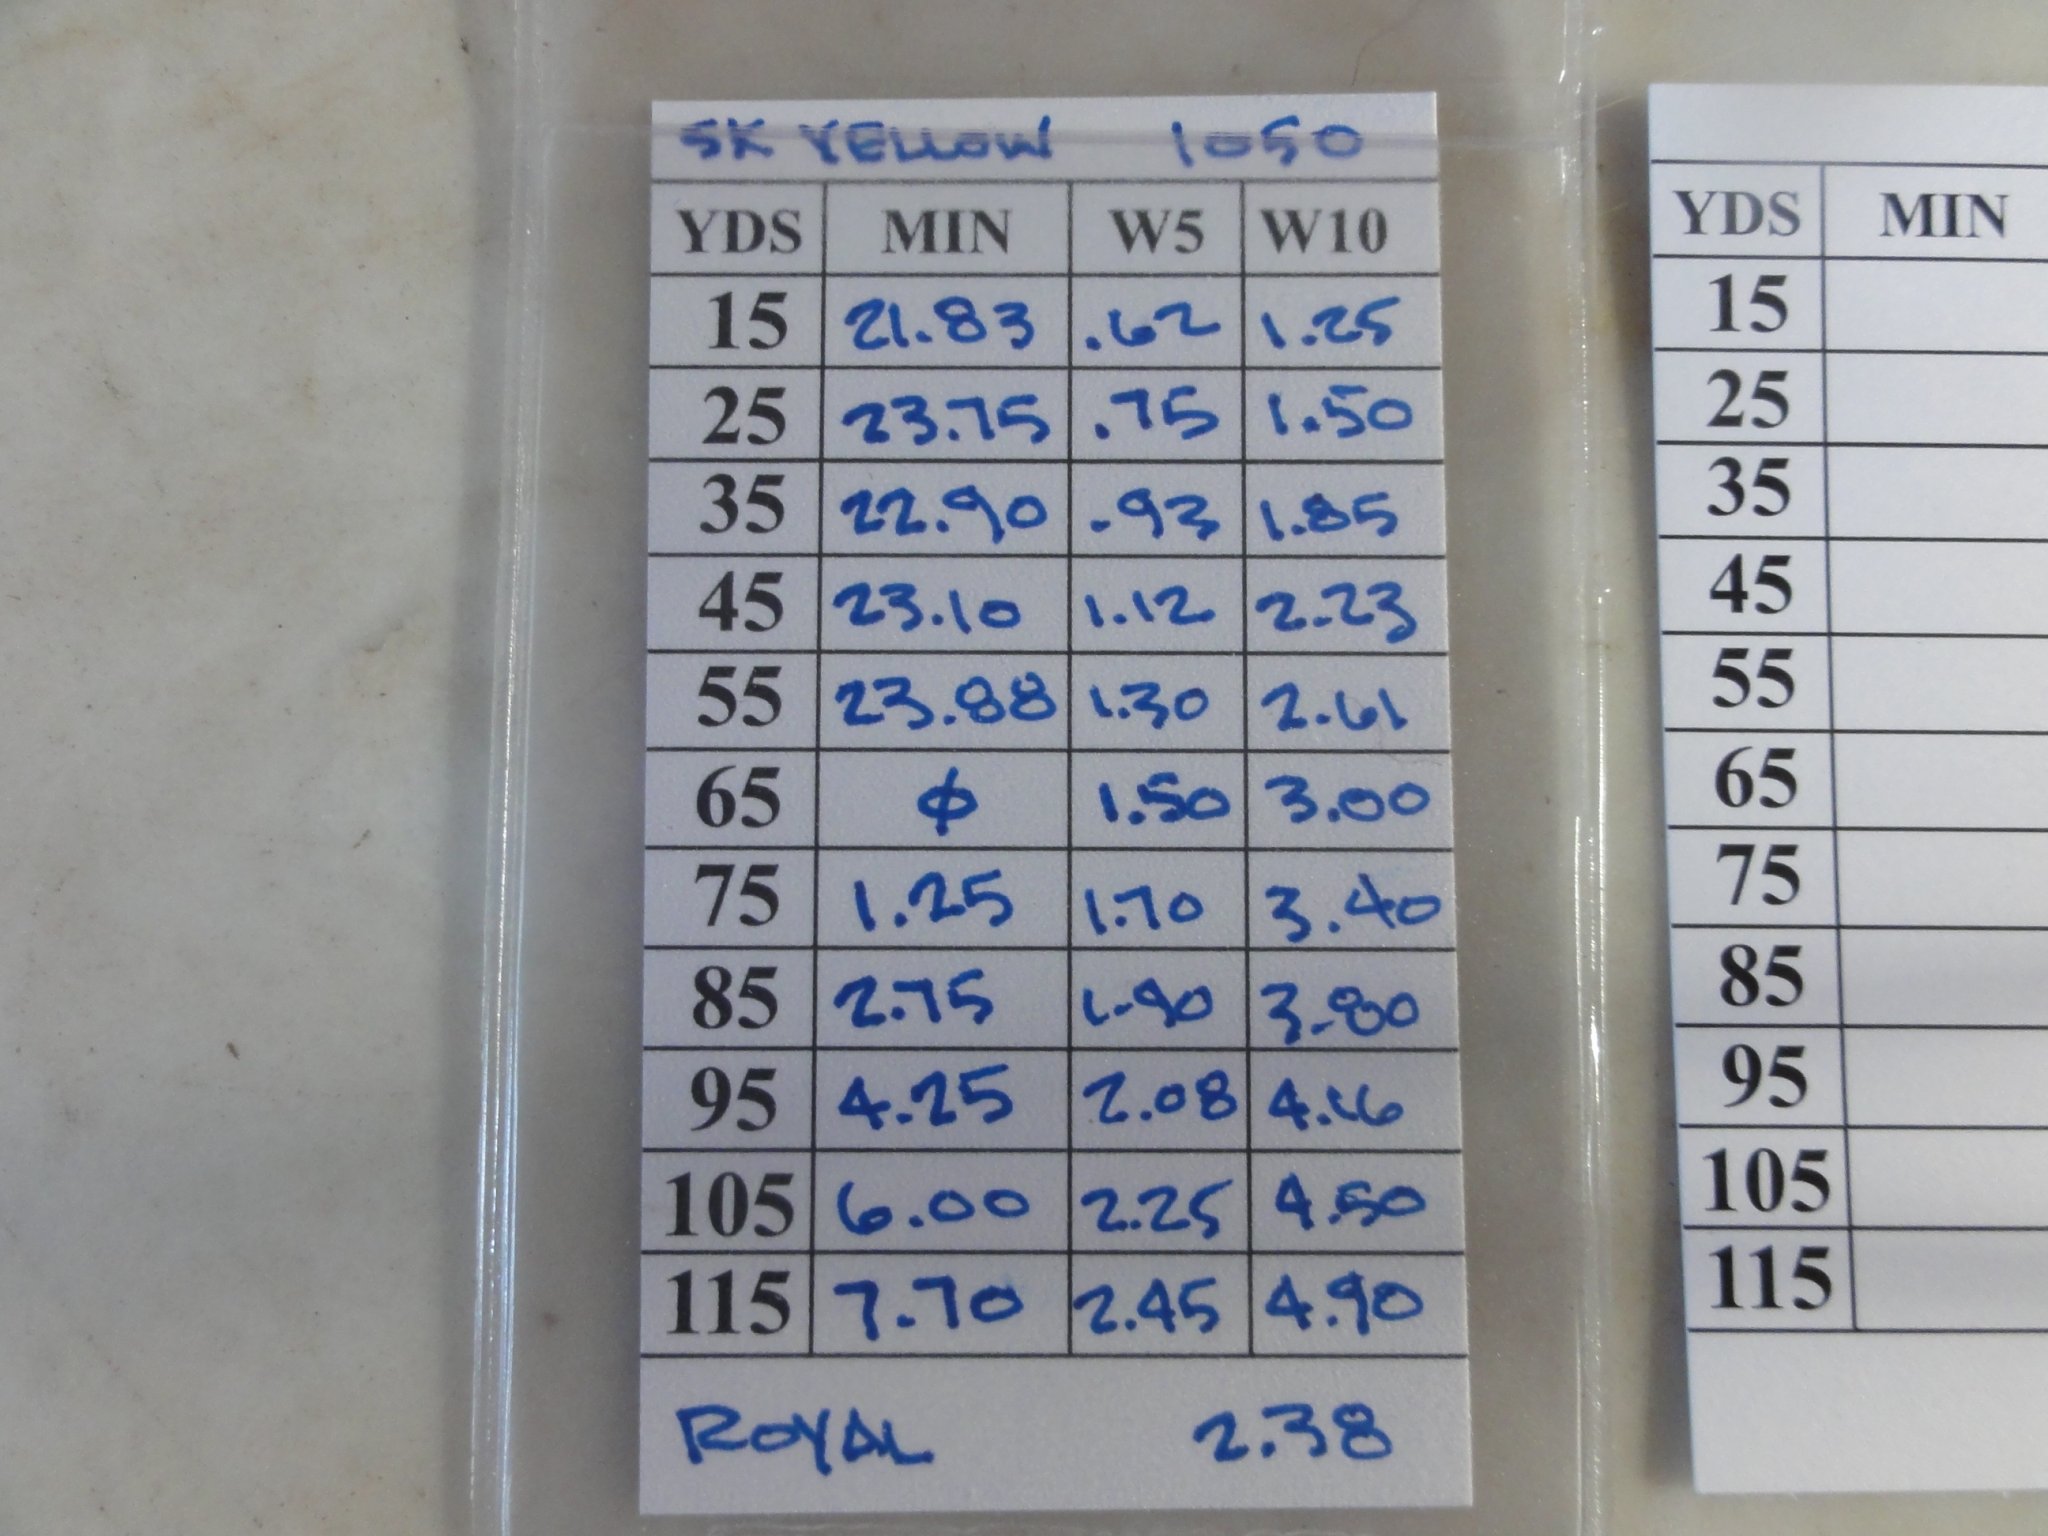 SK YELLOW 1050
YDS MIN W5 W10
15 21.83 .62 1.25
25 23.75 .75 1.50
35 22.90 .93 1.85
45 23.10 1.12 2.23
55 23.88 1.30 2.61
65 ϕ 1.50 3.00
75 1.25 1.70 3.40
85 2.75 1.90 3.80
95 4.25 2.08 4.16
105 6.00 2.25 4.50
115 7.70 2.45 4.90
ROYAL 2.38
YDS MIN
15
25
35
45
55
65
75
85
95
105
115